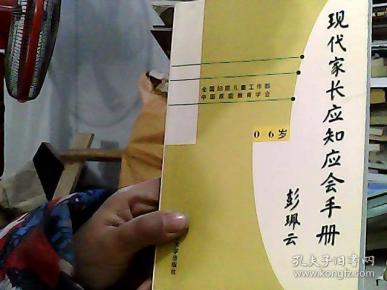 现代家长应知应会手册
彭珮云
全国妇联儿童工作部
中国家庭教育学会
0 6岁
出版社
孔夫子旧书网